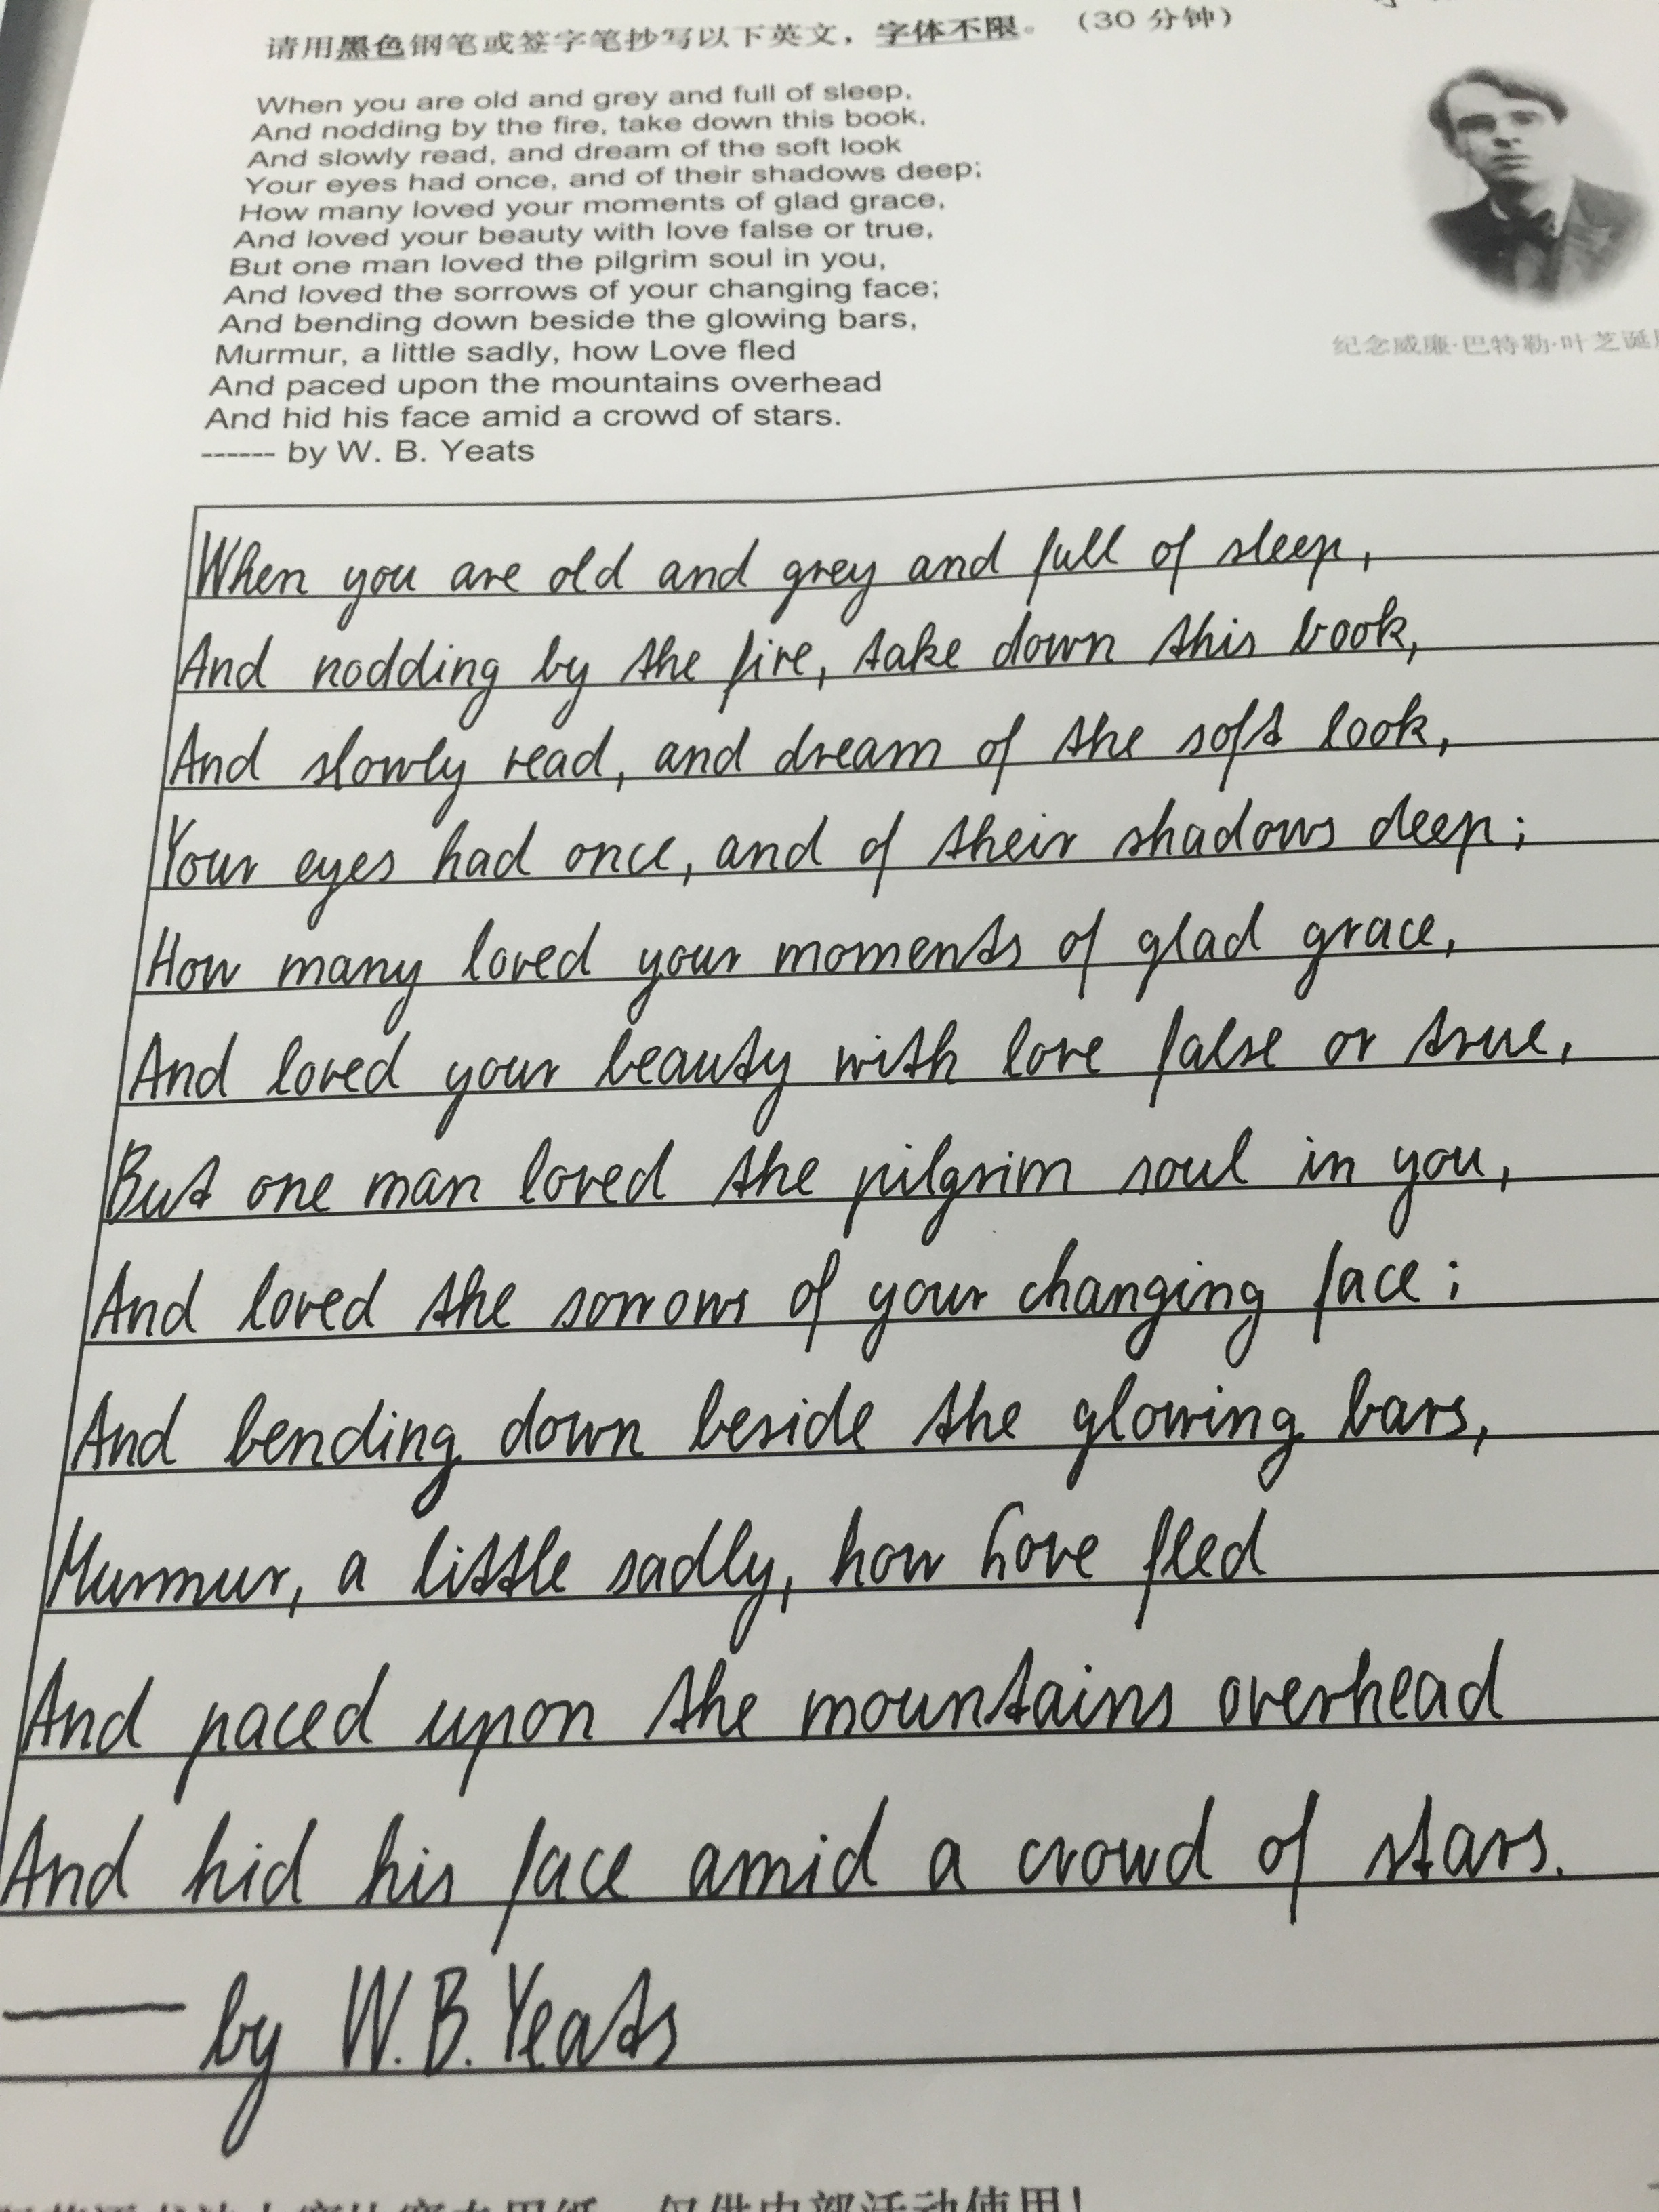 请用黑色钢笔或签字笔抄写以下英文，字体不限。（30 分钟）
When you are old and grey and full of sleep,
And nodding by the fire, take down this book,
And slowly read, and dream of the soft look
Your eyes had once, and of their shadows deep;
How many loved your moments of glad grace,
And loved your beauty with love false or true,
But one man loved the pilgrim soul in you,
And loved the sorrows of your changing face;
And bending down beside the glowing bars,
Murmur, a little sadly, how Love fled
And paced upon the mountains overhead
And hid his face amid a crowd of stars.
------ by W. B. Yeats
纪念威廉·巴特勒·叶芝诞
When you are old and grey and full of sleep,
And nodding by the fire, take down this book,
And slowly read, and dream of the soft look,
Your eyes had once, and of their shadows deep;
How many loved your moments of glad grace,
And loved your beauty with love false or true,
But one man loved the pilgrim soul in you,
And loved the sorrows of your changing face;
And bending down beside the glowing bars,
Murmur, a little sadly, how Love fled
And paced upon the mountains overhead
And hid his face amid a crowd of stars.
— by W. B. Yeats
仅供内部活动使用！